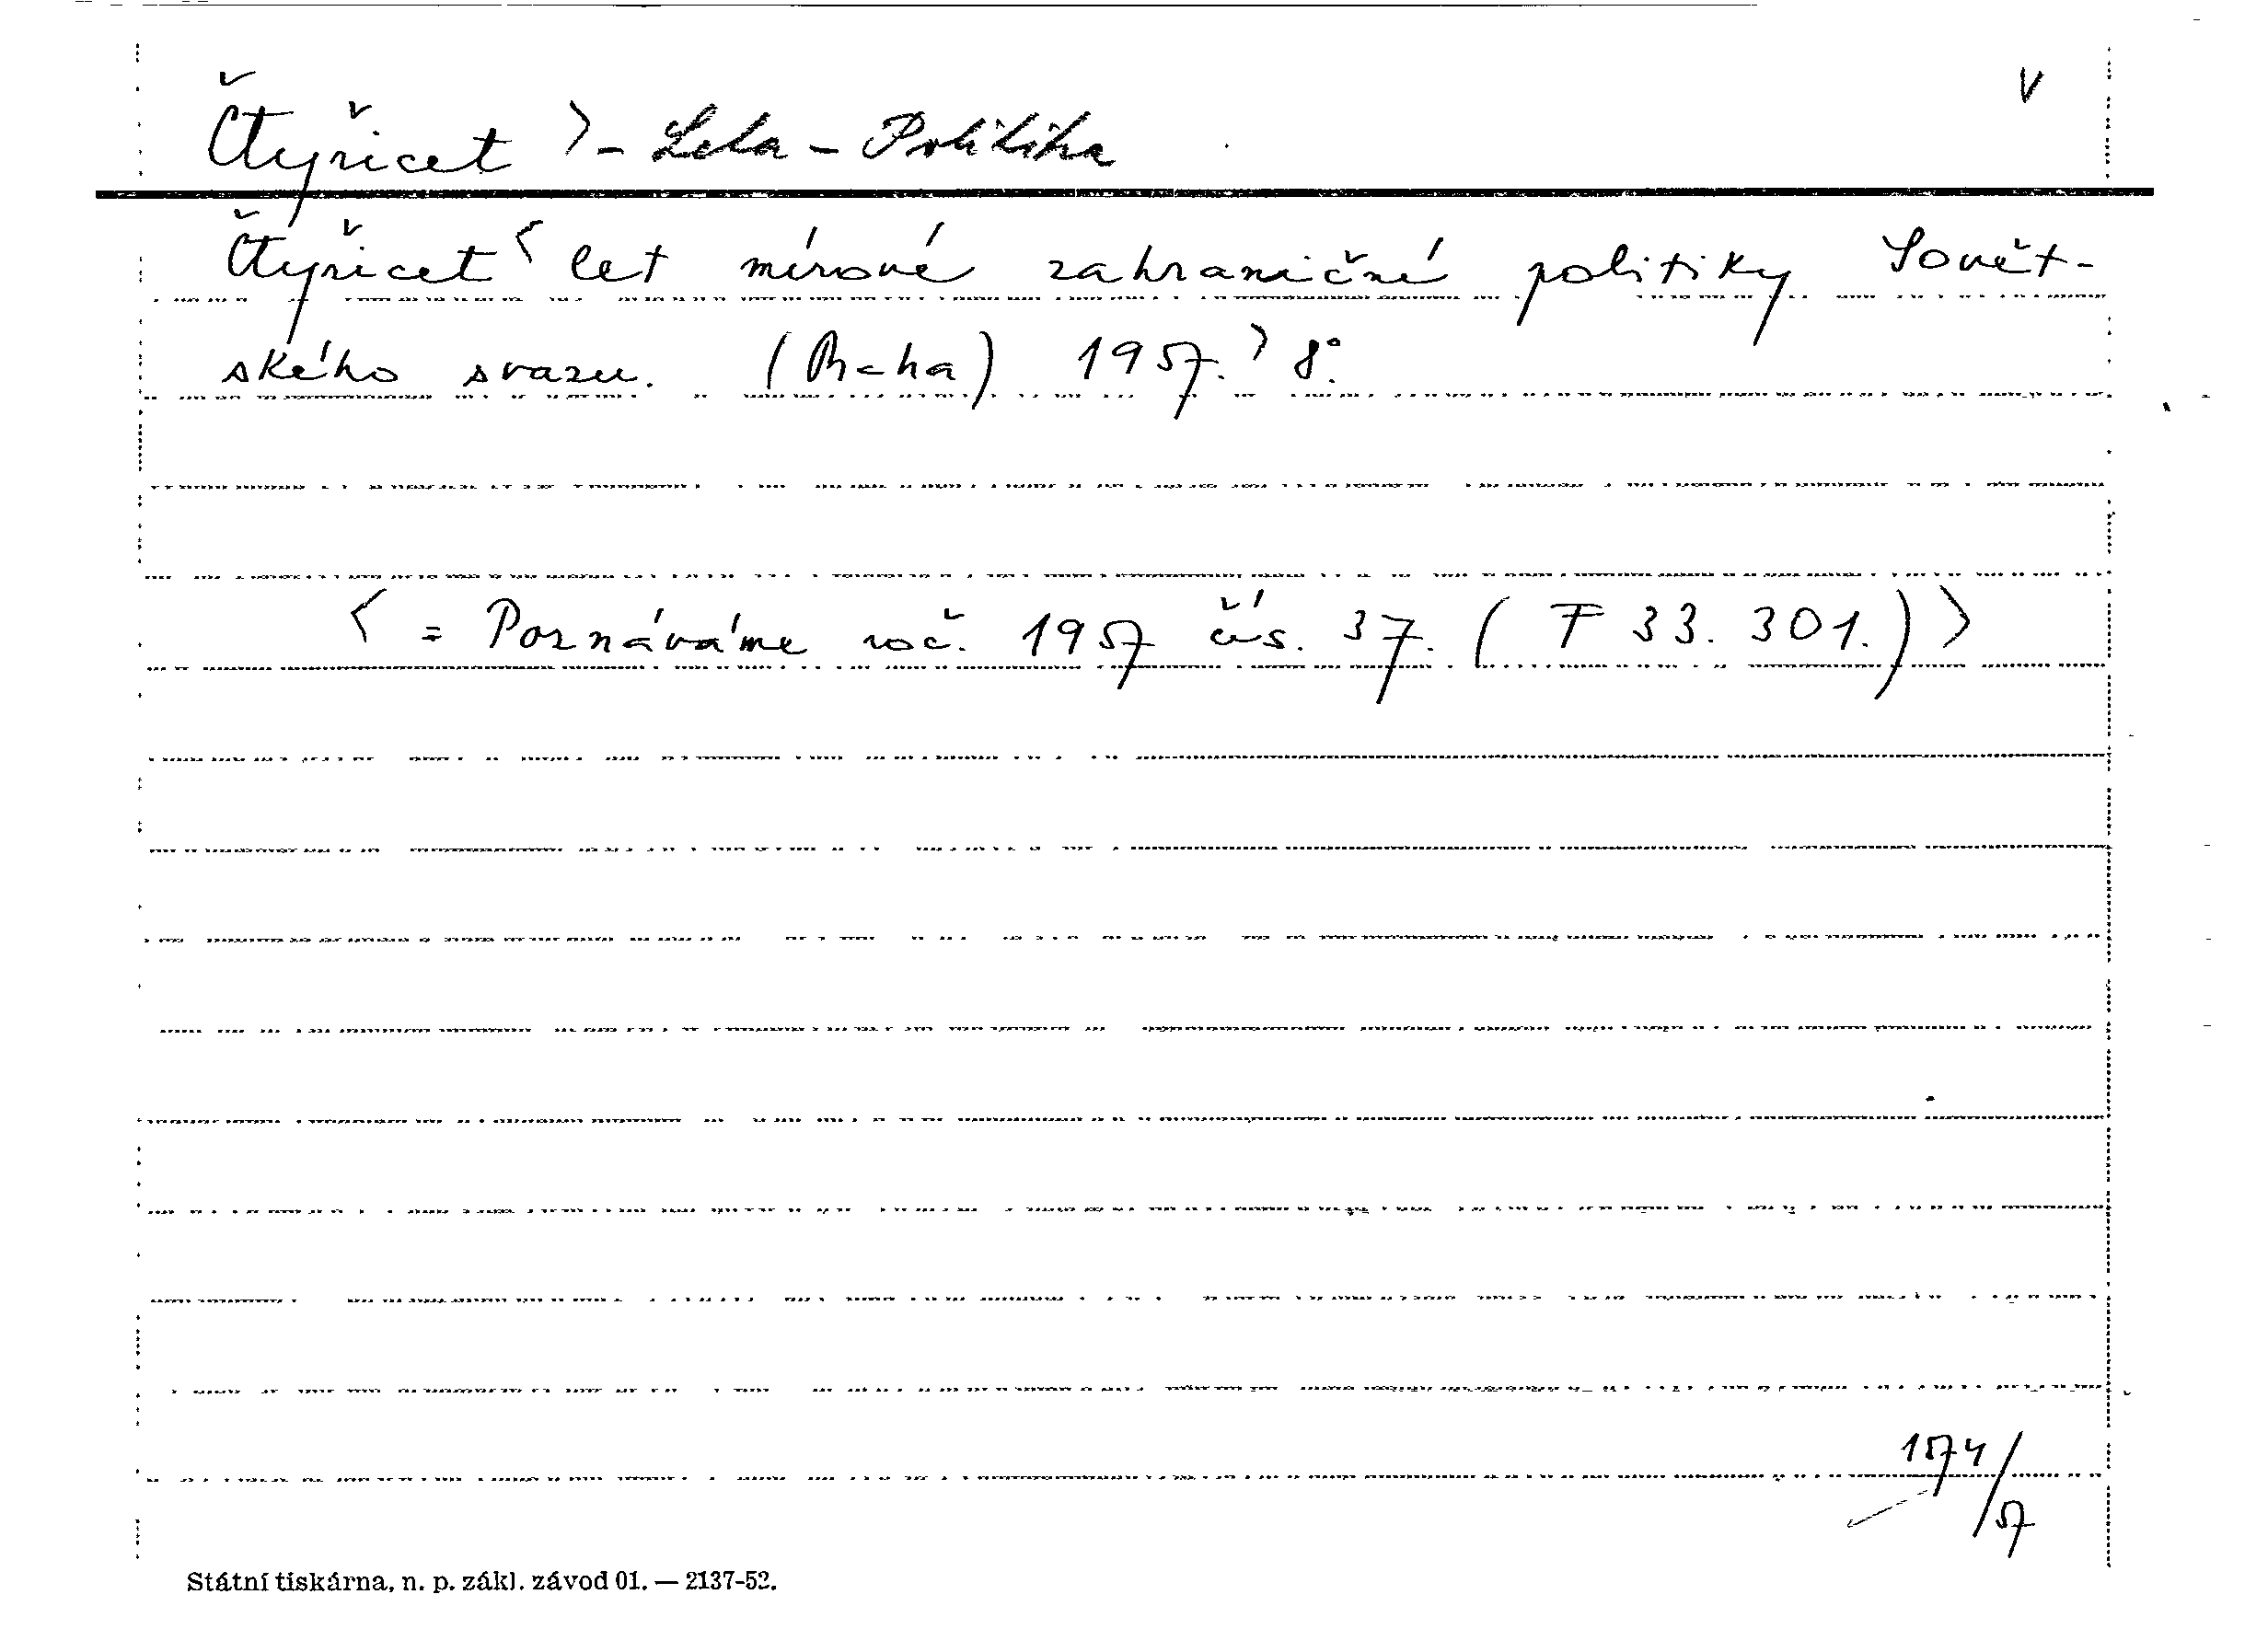 V
Čtyřicet > - Leta - Politika
Čtyřicet < let mírové zahraniční politiky Sovět-
ského svazu. (Praha) 1957. > 8°.
< = Poznáváme roč. 1957 čís. 37. (F 33.301.) >
1574/57
Státní tiskárna, n. p. zákl. závod 01. — 2137-52.